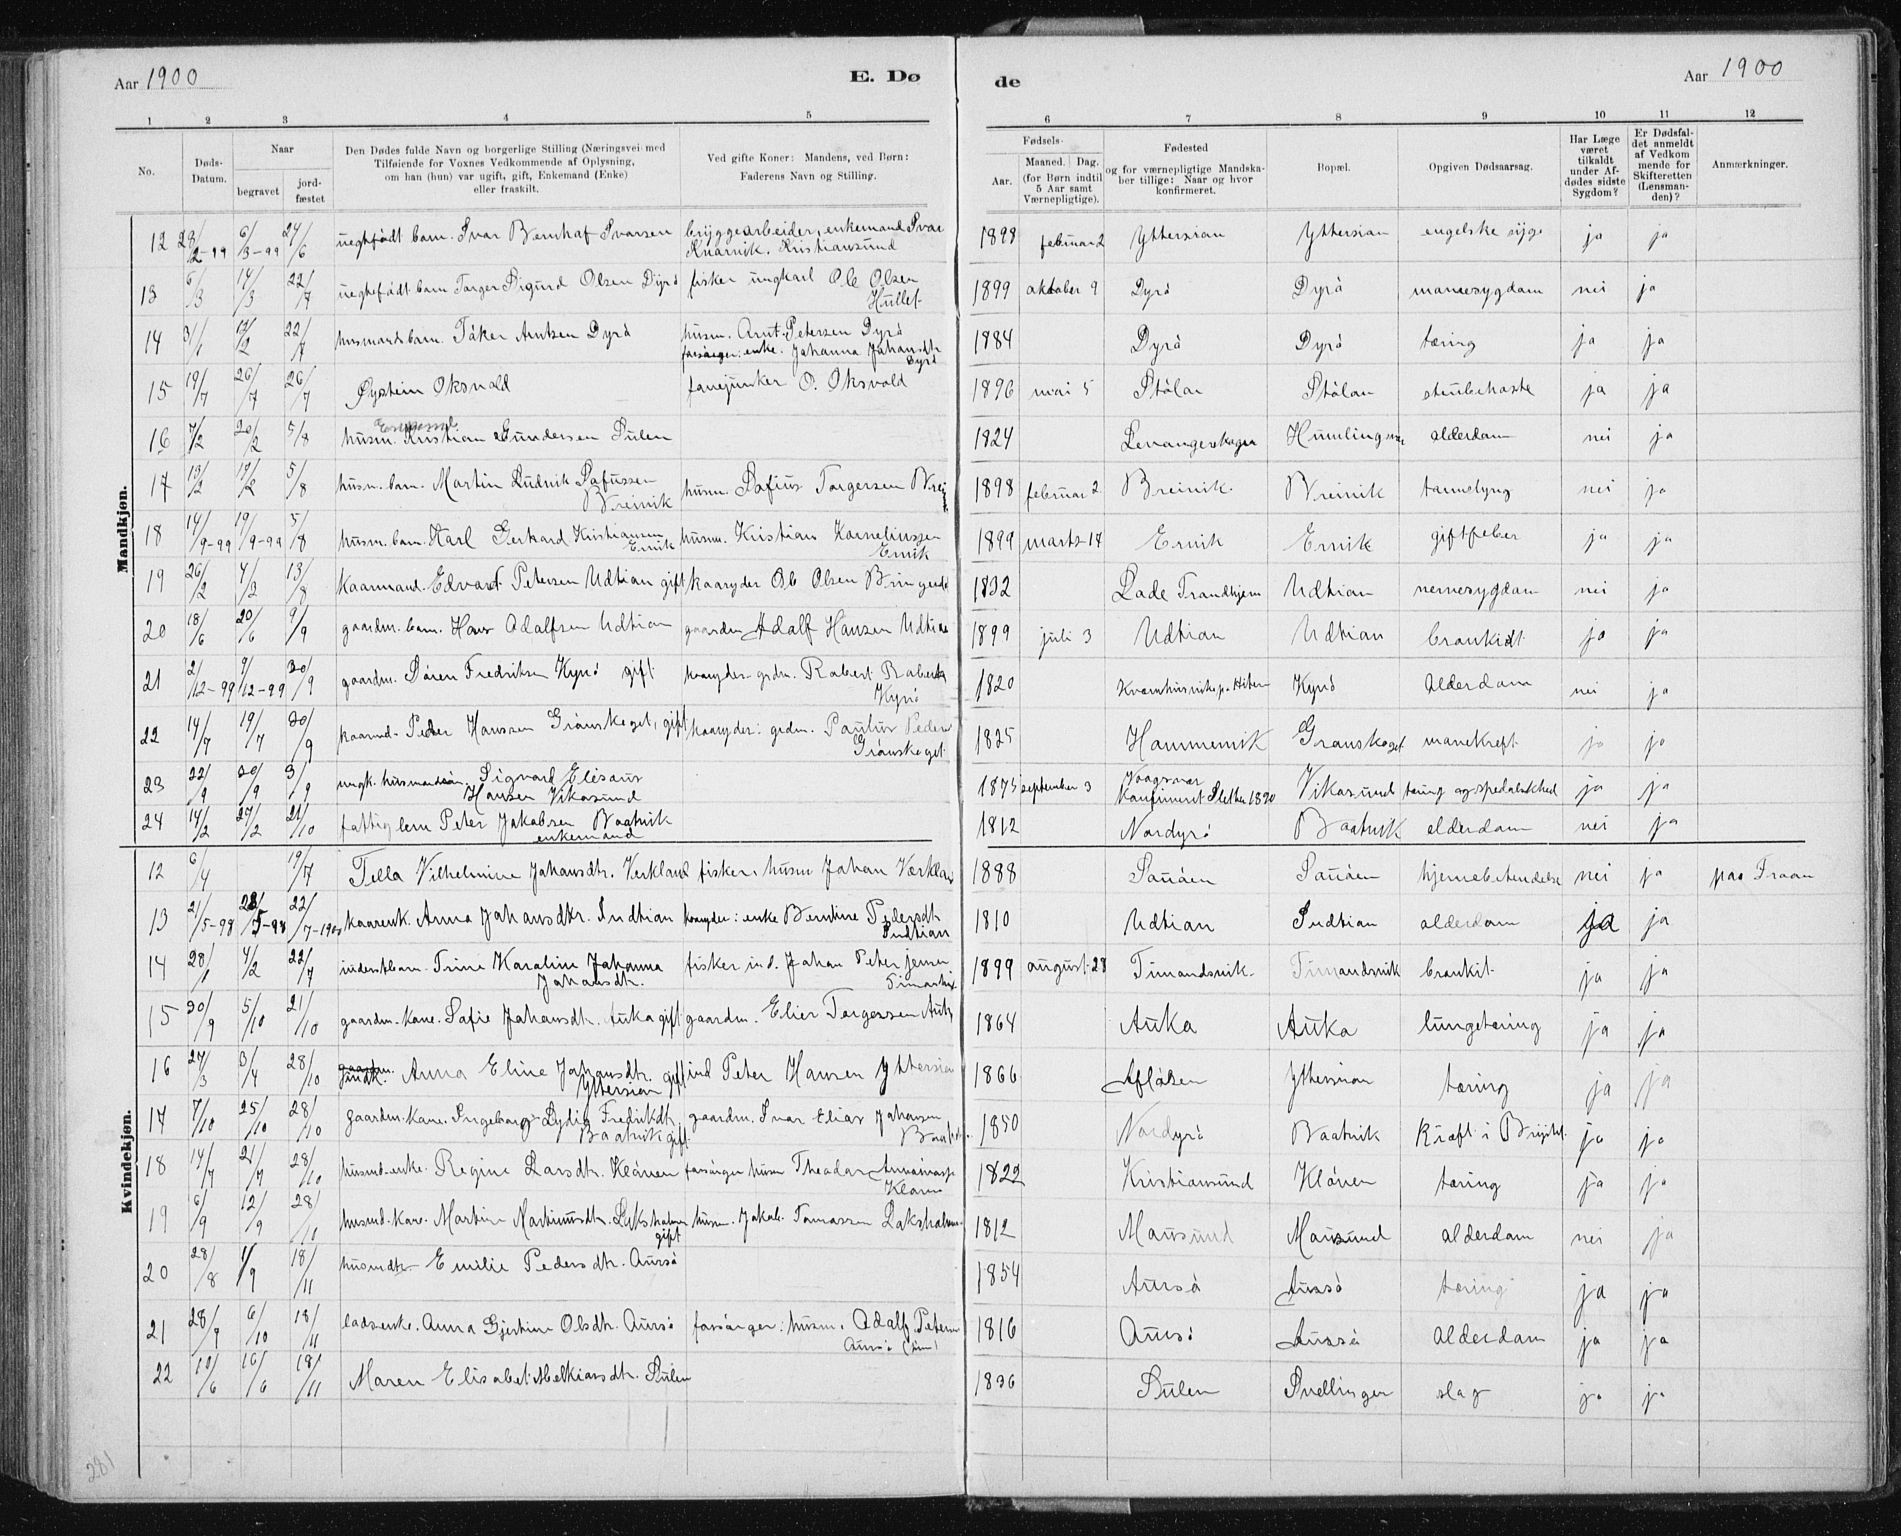 Aar 1900 E. Dø de Aar 1900
1 2 3 4 5 6 7 8 9 10 11 12
No.
Døds-Datum.
Naar
begravet
jord-fæstet
Den Dødes fulde Navn og borgerlige Stilling (Næringsvei med
Tilføiende for Voxnes Vedkommende af Oplysning,
om han (hun) var ugift, gift, Enkemand (Enke)
eller fraskilt.
Ved gifte Koner: Mandens, ved Børn:
Faderens Navn og Stilling.
Fødsels-
Aar.
Maaned. Dag.
(for Børn indtil
5 Aar samt
Værnepligtige).
Fødested
og for værnepligtige Mandska-
ber tillige: Naar og hvor
konfirmeret.
Bopæl.
Opgiven Dødsaarsag.
Har Læge
været
tilkaldt
under Af-
dødes sidste
Sygdom?
Er Dødsfal-
det anmeldt
af Vedkom
mende for
Skifteretten
(Lensman-
den)?
Anmærkninger.
Mandkjøn.
12 28/2-99 6/3-99 24/6 uegtefødt barn. Ivar Iversen bryggearbeider, enkemand Ivar
Kristiansund 1898 februar 2 Yttersian Yttersian engelske syge ja ja
13 6/3 14/3 22/7 uegtefødt barn Torger Sigurd Olsen Dyrö fisker ungkarl Ole Olsen
1899 oktober 9 Dyrö Dyrö mavesygdom nei ja
14 31/1 17/2 22/7 husmandsbarn. Arntsen Dyrö husm. Arnt Petersen Dyrö
forsørger: enke. Johanna Johansdtr
Dyrö 1884 Dyrö Dyrö tæring ja ja
15 19/7 26/7 26/7 Øystein Oksvold fanejunker O. Oksvold 1896 mai 5 Stölan Stölan strubehoste ja ja
16 7/2 20/2 5/8 husm. Kristian Gundersen Sulen 1824 Levangerskogn alderdom nei ja
17 13/2 17/2 5/8 husm. barn. Martin Ludvik
Breivik husm. Torgersen 1898 februar 2 Breivik Breivik nei ja
18 14/9-99 19/9-99 5/8 husm. barn. Karl Gerhard Kristiansen
Ervik husm. Kristian Kornelinssen
Ervik 1899 marts 14 Ervik Ervik giftfeber ja ja
19 26/2 4/3 13/8 kaarmand. Edvart Petersen Udtian gift kaaryder Ole Olsen 1832 Lade Trondhjem Udtian nervesygdom nei ja
20 18/6 20/6 9/9 gaardm. barn. Hans Adolfsen Udtian gaardm Adolf Hansen Udtian 1899 juli 3 Udtian Udtian bronkidt ja ja
21 2/12-99 9/12-99 30/9 gaardm. Sören Fredriksen Kyrö gift kaaryder grdm. Robert
Kyrö 1820 Kyrö Alderdom nei ja
22 14/7 19/7 30/9 kaarmd. Peder Hanssen Grönskaget, gift kaaryder: grdm. Paulus
Grönskaget 1825 Hammervik Grönskaget mavekreft ja ja
23 22/9 30/9 3/9 ungk. husmandssön. Sigvard Eliseus
Hansen Vikasund 1875 september 3
Konfirmeret Sletten 1890 Vikasund tæring og spedalskhed ja ja
24 14/2 27/2 21/10 fattiglem Peter Jakobsen Baatvik
enkemand 1812 Nordyrö Baatvik alderdom nei ja
Kvindekjøn.
12 6/4 19/7 Tella Vilhelmine Johansdtr. Verkland fisker. husm Johan 1888 Sauöen Sauöen hjernebetendelse nei ja paa Froan
13 21/5-98 28/5-98 22/7-1900 kaarenk. Anna Johansdtr. Indtian kaaryder: enke Berntine Pedersdt
Indtian 1810 Udtian Indtian alderdom ja ja
14 28/1 4/2 22/7 inderstbarn. Trine Karoline Johanna
Johansdtr. fisker ind. Johan Peter Jensen
1899 august 28 Timandsvik Timandsvik bronkit ja ja
15 30/9 5/10 21/10 gaardm. kone. Sofie Johansdt. Auka gift gaardm. Elier Torgersen 1864 Auka Auka lungetæring ja ja
16 24/3 3/4 28/10 gaardm. Anna Eline Johansdtr. gift
Yttersian ind Peter Hansen Yttersian 1866 Afløsen Yttersian tæring ja ja
17 7/10 25/10 28/10 gaardm. kone. Ingeborg Lydia Fredrikdt.
Baatvik gift gaardm. Ivar Elias Johansen
1850 Nordyrö Baatvik Kræft i ja ja
18 14/7 21/7 28/10 husmd. enke. Regine Larsdtr. Klöven forsörger husm Theodor
Klöven 1822 Kristiansund Klöven tæring ja ja
19 6/9 12/9 28/10 husmd. kone. Martine
gift husm. Jakob Tomassen Laksholmen 1812 Mausund Mausund alderdom nei ja
20 28/8 1/9 18/11 husmdtr. Emilie Pedersdtr. Aursö 1854 Aursö Aursö tæring ja ja
21 28/9 6/10 18/11 ladsenke. Anna Gjertine Olsdtr. Aursö forsörger: husm. Adolf Petersen
Aursö 1816 Aursö Aursö alderdom ja ja
22 10/6 16/6 18/11 Maren Elisabet Melkiorsdt. Sulen 1836 Sulen Svellingen slag ja ja
281